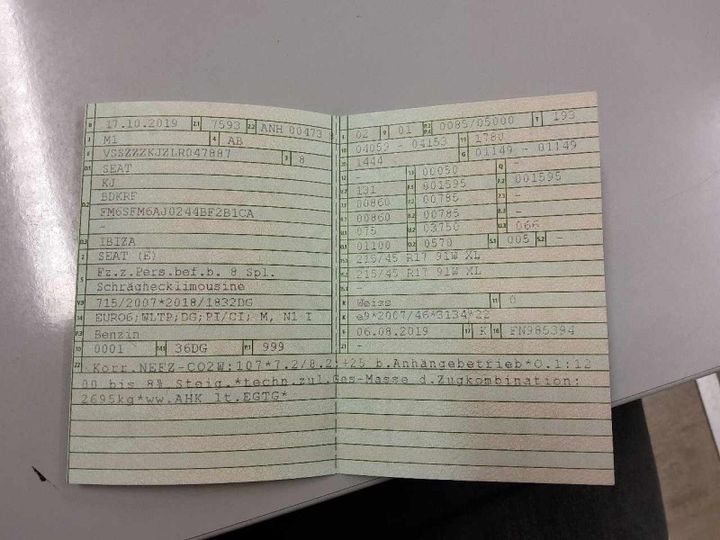 B 17.10.2019 2.1 7593 2.2 ANH 00473 8
J M1 4 AB
E VSSZZZKJZLR047887 3 8
D.1 SEAT
KJ
D.2 BDKRF
FM6SFM6AJ0244BF2B1CA
-
D.3 IBIZA
2 SEAT (E)
5 Fz.z.Pers.bef.b. 8 Spl.
Schräghecklimousine
V.9 715/2007*2018/1832DG
14 EURO6;WLTP;DG;PI/CI; M, N1 I
P.3 Benzin
10 0001 14.1 36DG P.1 999
L 02 9 01 P.2 P.4 0085/05000 T 193
18 04053 - 04153 19 1780
20 1444 G 01149 - 01149
12 - 13 00050 Q -
V.7 131 F.1 001595 F.2 001595
7.1 00860 7.2 00785 7.3 -
8.1 00860 8.2 00785 8.3 -
U.1 075 U.2 03750 U.3 066
O.1 01100 O.2 0570 S.1 005 S.2 -
15.1 215/45 R17 91W XL
15.2 215/45 R17 91W XL
15.3 -
R Weiss 11 0
K e9*2007/46*3134*22
6 06.08.2019 17 K 16 FN985394
22 Korr.NEFZ-CO2W:107*7.2/8.2:+25 b.Anhängebetrieb*O.1:12
00 bis 8% Steig.*techn.zul.Ges-Masse d.Zugkombination:
2695kg*ww.AHK lt.EGTG*